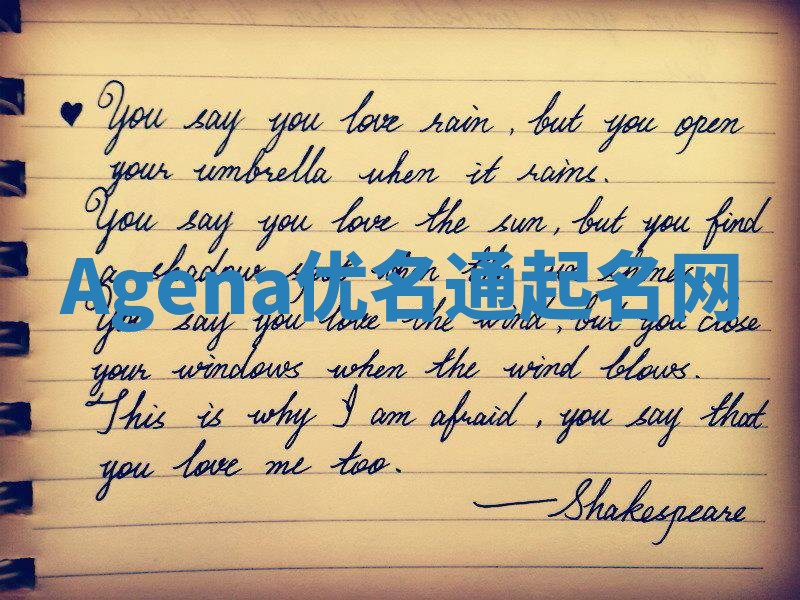 ♥ You say you love rain, but you open
your umbrella when it rains.
You say you love the sun, but you find
a shadow spot when the sun shines.
Agena优名通起名网
You say you love the wind, but you close
your windows when the wind blows.
This is why I am afraid, you say that
you love me too.
—Shakespeare